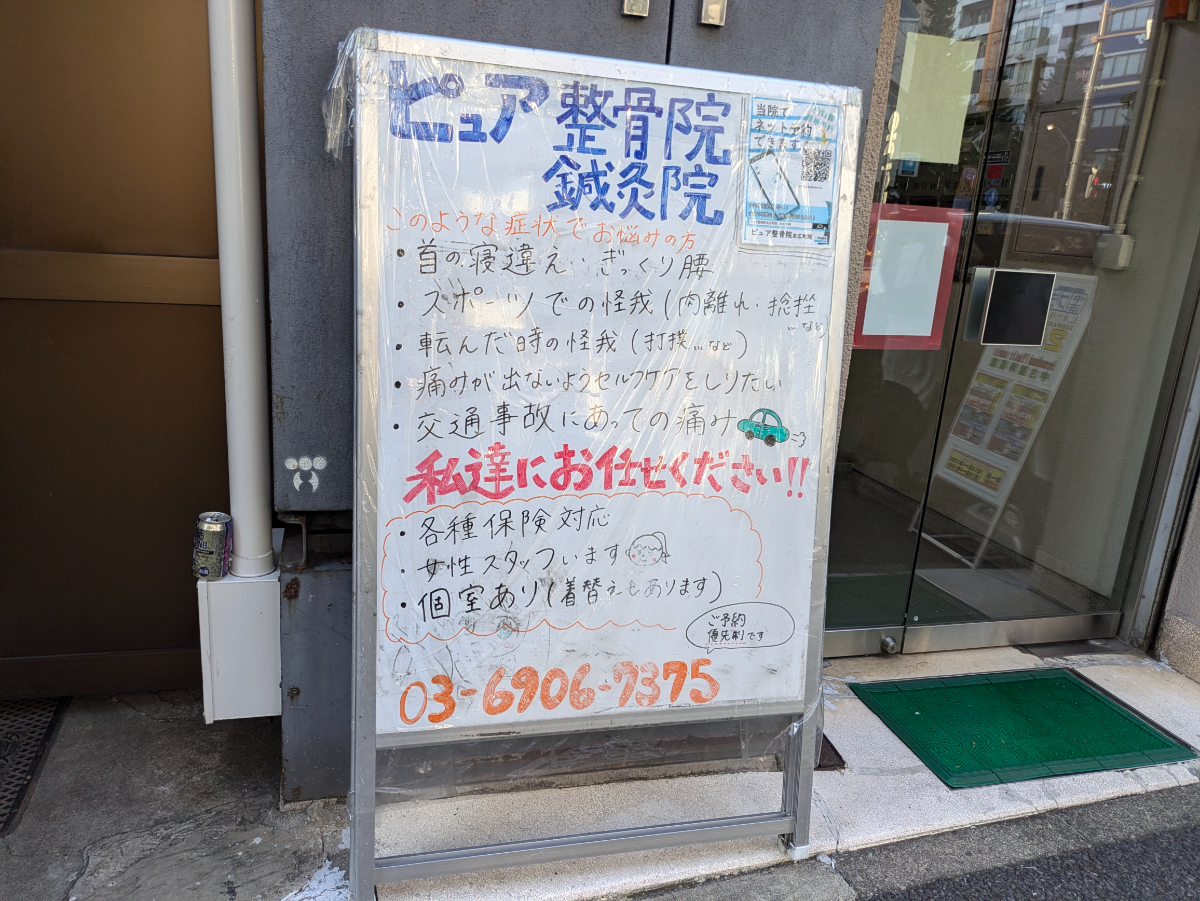 ピュア整骨院
鍼灸院
当院で
ネット予約
できます
ピュア整骨院
このような症状でお悩みの方
・首の寝違え・ぎっくり腰
・スポーツでの怪我(肉離れ・捻挫
…など)
・転んだ時の怪我(打撲…など)
・痛みが出ないようセルフケアをしりたい
・交通事故にあっての痛み
私達にお任せください!!
・各種保険対応
・女性スタッフいます
・個室あり(着替えもあります)
ご予約
優先制です
03-6906-7375